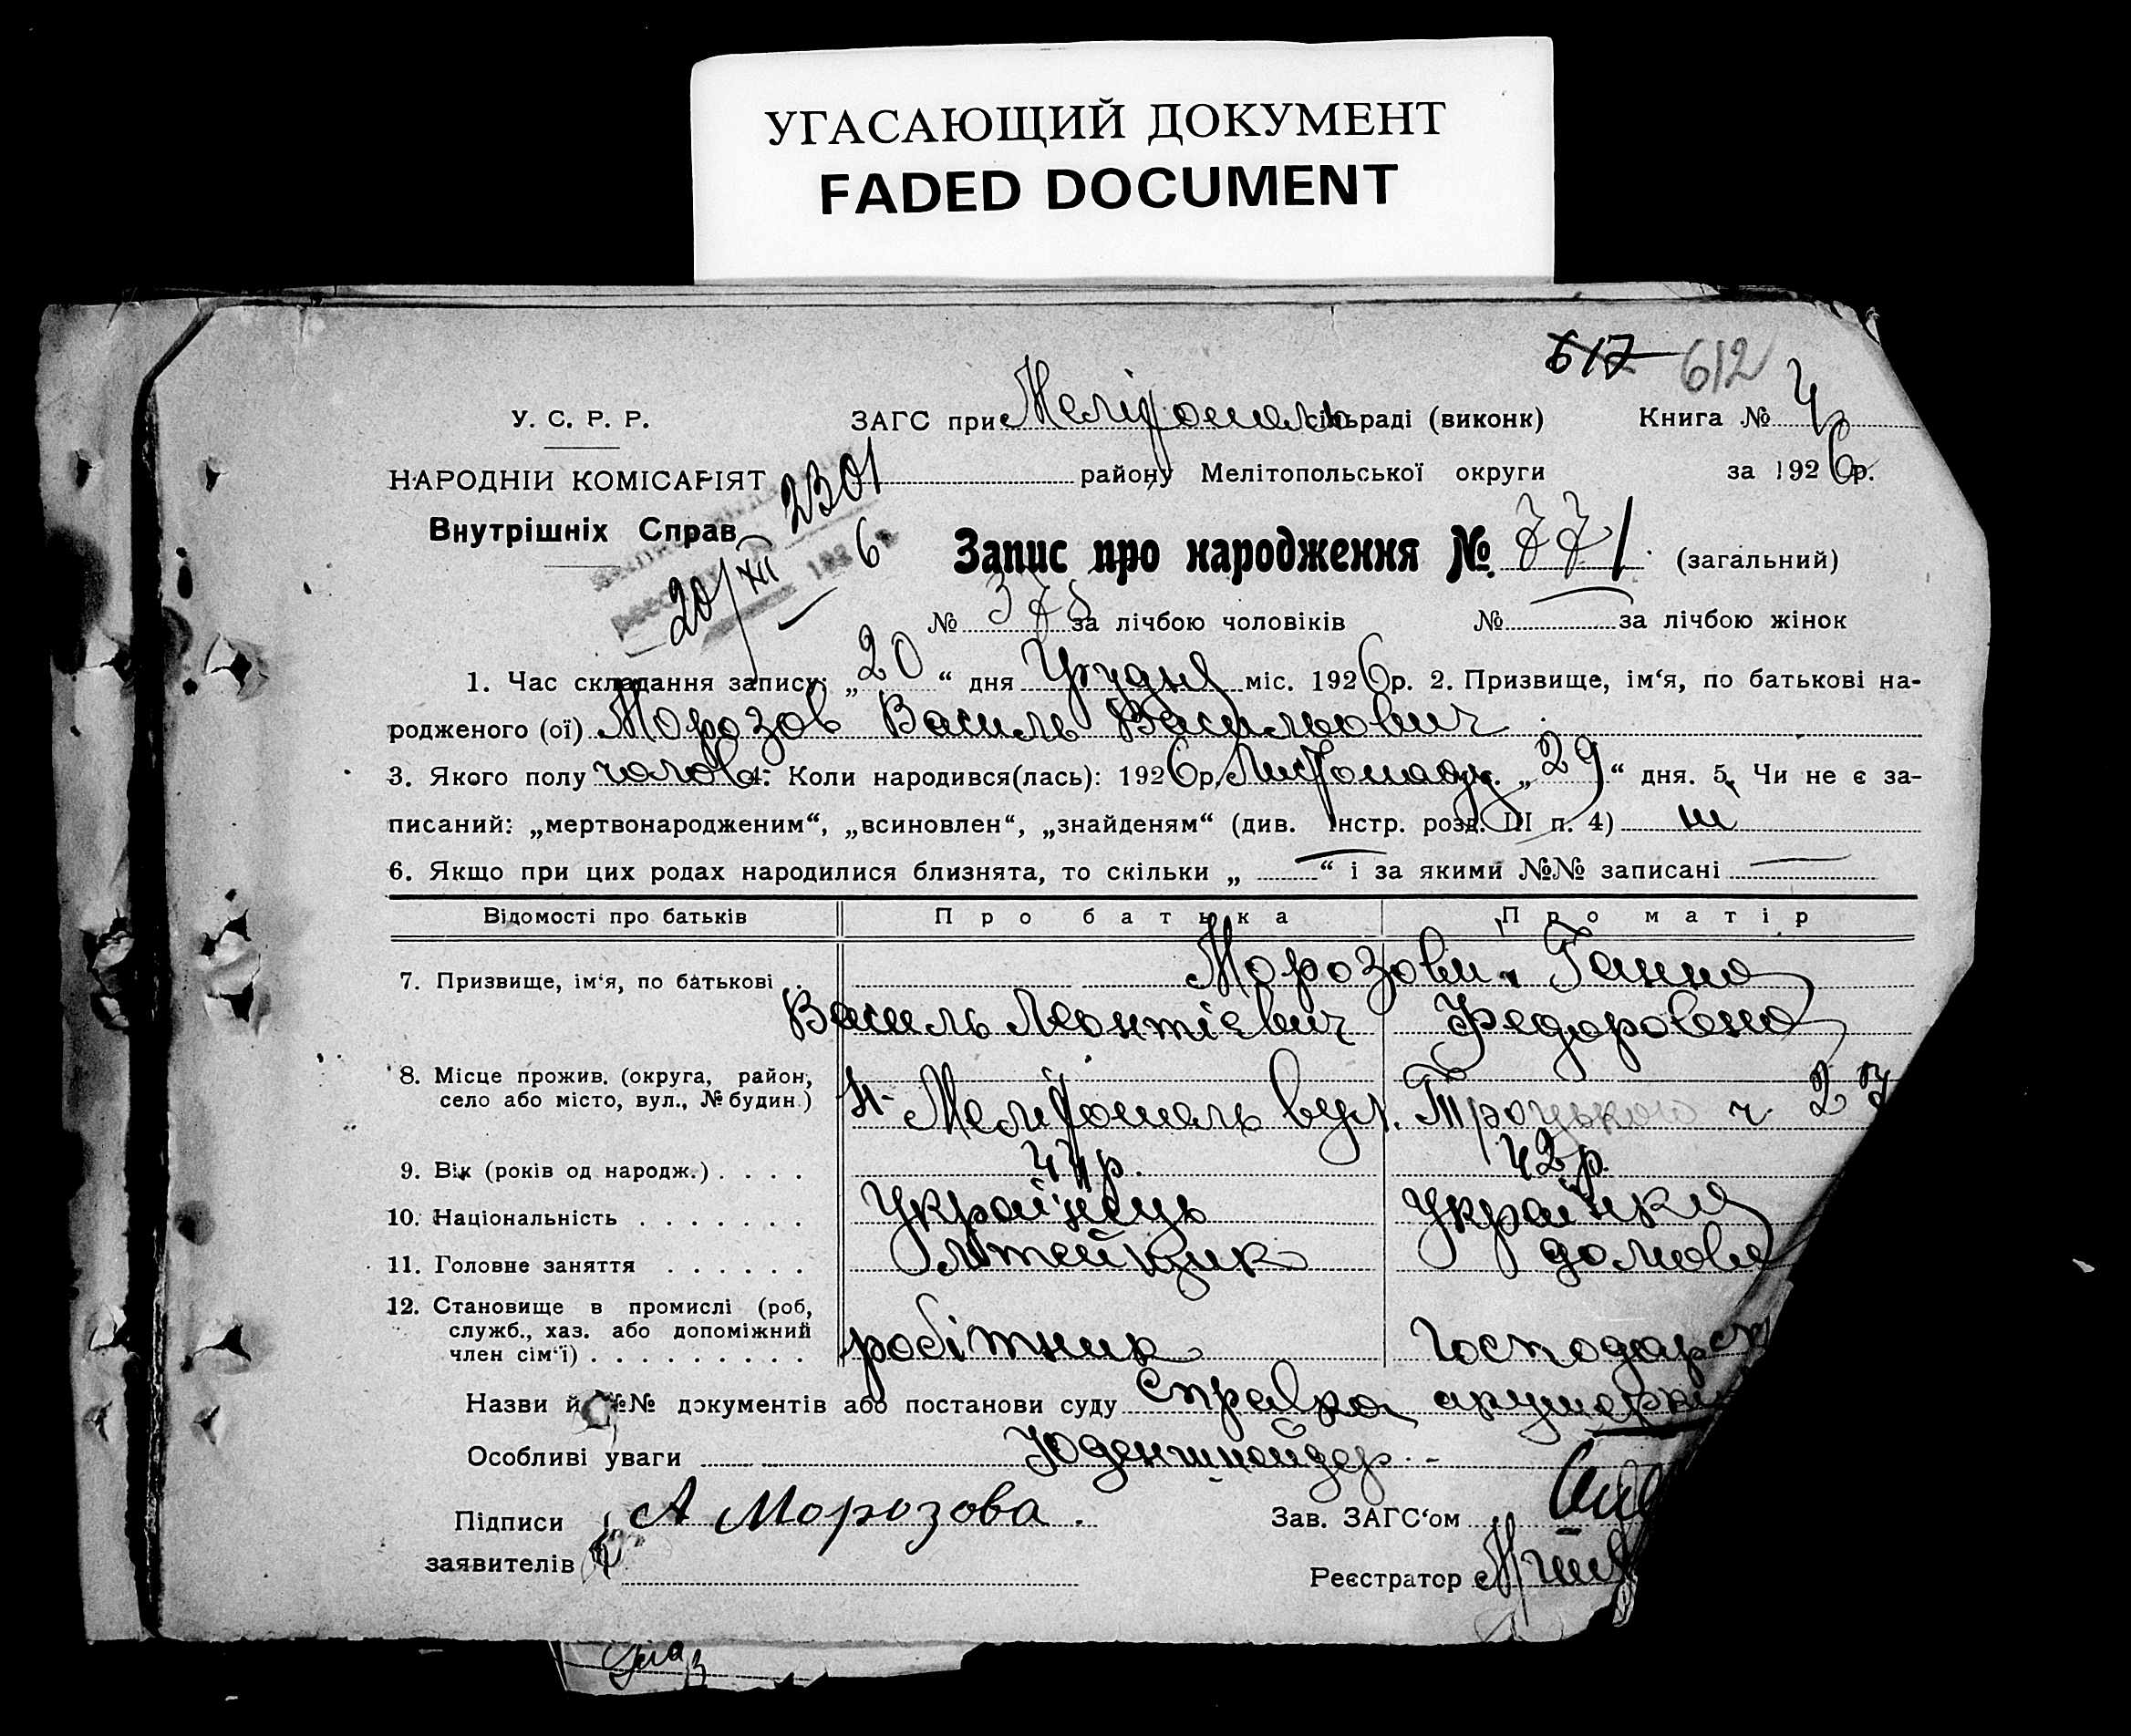 УГАСАЮЩИЙ ДОКУМЕНТ
FADED DOCUMENT
617 612
У. С. Р. Р. ЗАГС при Мелітополь сільраді (виконк) Книга № 4
НАРОДНІИ КОМІСАРІЯТ 2301 району Мелітопольської округи за 1926 р.
Внутрішніх Справ
20/XII 6
Запис про народження № 771 (загальний)
№ 378 за лічбою чоловіків № за лічбою жінок
1. Час складання запису: „20“ дня Грудня міс. 1926 р. 2. Призвище, ім‘я, по батькові на-
родженого (ої) Морозов Василь Васильович
3. Якого полу чолов. 4. Коли народився(лась): 1926 р. Листопаду „29“ дня. 5. Чи не є за-
писаний: „мертвонародженим“, „всиновлен“, „знайденям“ (див. Інстр. розд. III п. 4) ні
6. Якщо при цих родах народилися близнята, то скільки „ “ і за якими №№ записані
Відомості про батьків Про батька Про матір
7. Призвище, ім‘я, по батькові Морозови Ганна
Василь Леонтієвич Федоровна
8. Місце прожив. (округа, район,
село або місто, вул., № будин.) Мелітополь вул. Троцького ч. 23
9. Вік (років од народж.) 44 р. 42 р.
10. Національність Українець Українка
11. Головне заняття литейщик домове
12. Становище в промислі (роб,
служб., хаз. або допоміжний
член сім‘ї) робітник господарств
Назви й №№ документів або постанови суду Справка акушерки
Особливі уваги Юденшнайдер
Підписи А Морозова. Зав. ЗАГС‘ом
заявителів Реєстратор